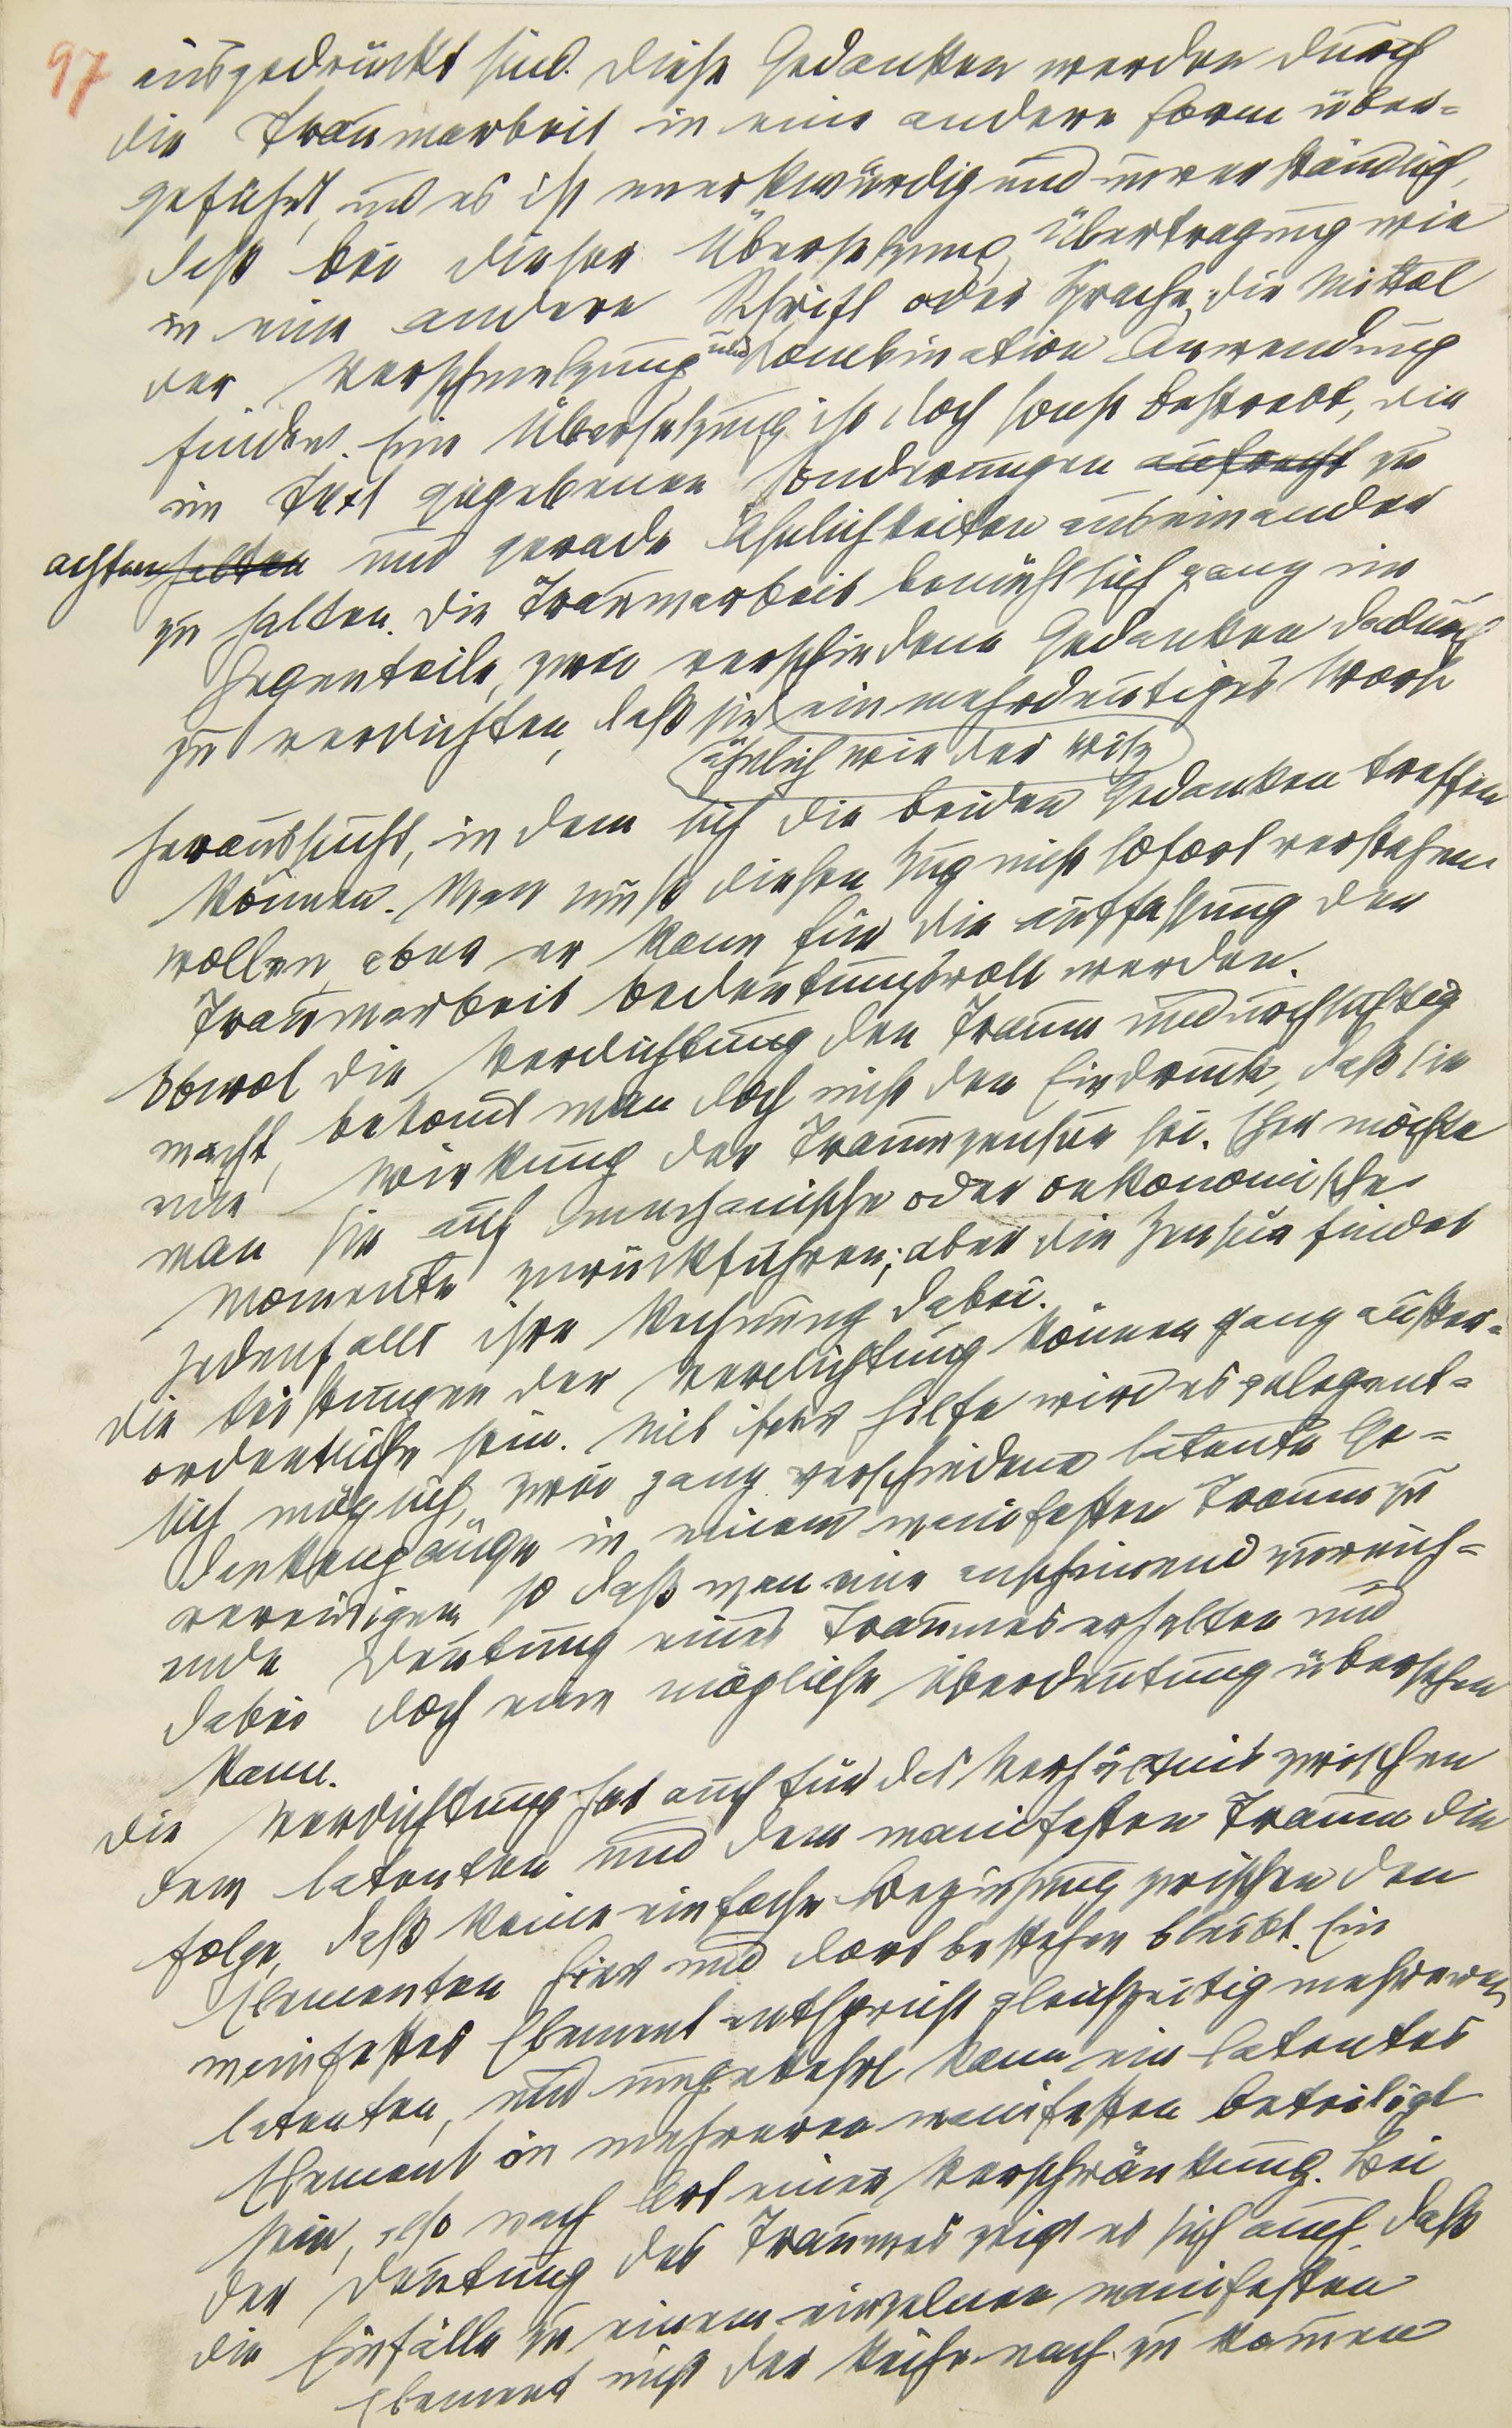 97 ausgedrückt sind. Diese Gedanken werden durch
die Traumarbeit in eine andere Form über-
geführt, und es ist merkwürdig und unverständlich,
daß bei dieser Übersetzung, Übertragung wie
in eine andere Schrift oder Sprache, die Mittel
der Verschmelzung und Kombination Anwendung
finden. Eine Übersetzung ist doch sonst bestrebt, die
im Text gegebenen Sonderungen aufrecht zu
achten halten und gerade Ähnlichkeiten auseinander
zu halten. Die Traumarbeit bemüht sich ganz im
Gegenteile, zwei verschiedene Gedanken dadurch
zu verdichten, daß sie ein mehrdeutiges Wort
ähnlich wie der Witz
heraussucht, in dem sich die beiden Gedanken treffen
können. Man muß diesen Zug nicht sofort verstehen
wollen, aber er kann für die Auffassung der
Traumarbeit bedeutungsvoll werden.
Obwol die Verdichtung den Traum undurchsichtig
macht, bekomt man doch nicht den Eindruck, daß sie
eine Wirkung der Traumzensur sei. Eher möchte
man sie auf mechanische oder oekonomische
Momente zurückführen; aber die Zensur findet
jedenfalls ihre Rechnung dabei.
Die Leistungen der Verdichtung können ganz außer-
ordentliche sein. Mit ihrer Hilfe wird es gelegent-
lich möglich, zwei ganz verschiedene latente Ge-
dankengänge in einem manifesten Traum zu
vereinigen, so daß man eine anscheinend zureich-
ende Deutung eines Traumes erhalten und
dabei doch eine mögliche Überdeutung übersehen
kann.
Die Verdichtung hat auch für das Verhältnis zwischen
dem latenten und dem manifesten Traum die
Folge, daß keine einfache Beziehung zwischen den
Elementen hier und dort bestehen bleibt. Ein
manifestes Element entspricht gleichzeitig mehreren
latenten, und umgekehrt kann ein latentes
Element an mehreren manifesten beteiligt
sein, also nach Art einer Verschränkung. Bei
der Deutung des Traumes zeigt es sich auch, daß
die Einfälle zu einem einzelnen manifesten
Element nicht der Reihe nach zu komen